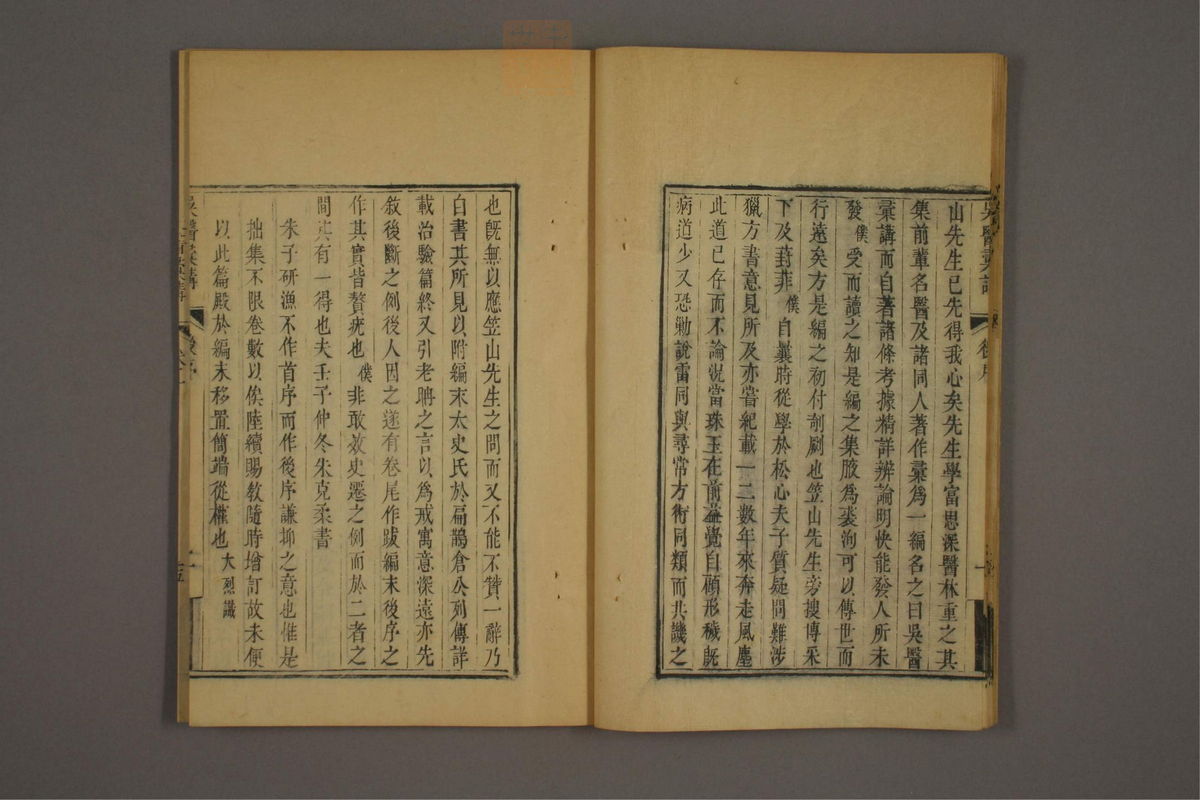 山先生已先得我心矣先生學富思深醫林重之其
集前輩名醫及諸同人著作彙爲一編名之曰吳醫
彙講而自著諸條考據精詳辨論明快能發人所未
發僕受而讀之知是編之集腋爲裘洵可以傳世而
行遠矣方是編之初付剞劂也笠山先生旁搜博采
下及葑菲僕自曩時從學於松心夫子質疑問難涉
獵方書意見所及亦嘗紀載一二數年來奔走風塵
此道已存而不論況當珠玉在前益覺自顧形穢旣
病道少又恐勦說雷同與尋常方術同類而共譏之
也旣無以應笠山先生之問而又不能不贊一辭乃
白書其所見以附編末太史氏於扁鵲倉公列傳詳
載治驗篇終又引老聃之言以爲戒寓意深遠亦先
敘後斷之例後人因之遂有卷尾作跋編末後序之
作其實皆贅疣也僕非敢效史遷之例而於二者之
間其有一得也夫壬子仲冬朱克柔書
朱子研漁不作首序而作後序謙抑之意也惟是
拙集不限卷數以俟陸續賜敎隨時增訂故未便
以此篇殿於編末移置簡端從權也 大烈識
吳醫彙講
後序